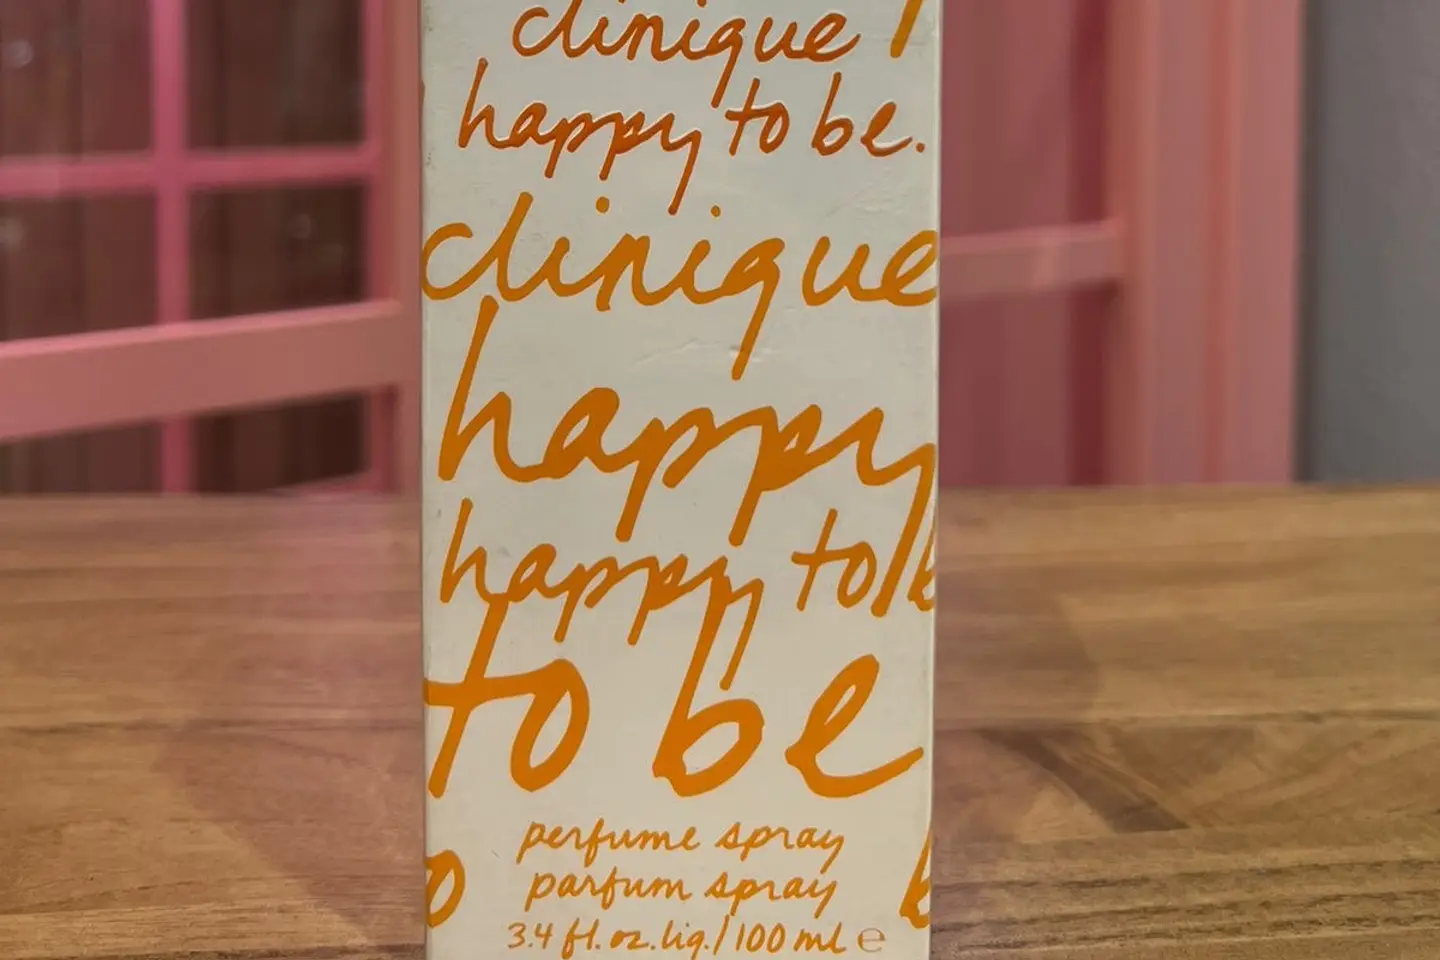 clinique
happy to be.
clinique
happy
happy to b
to be
perfume spray
parfum spray
o b
3.4 fl. oz. liq. / 100 ml ℮